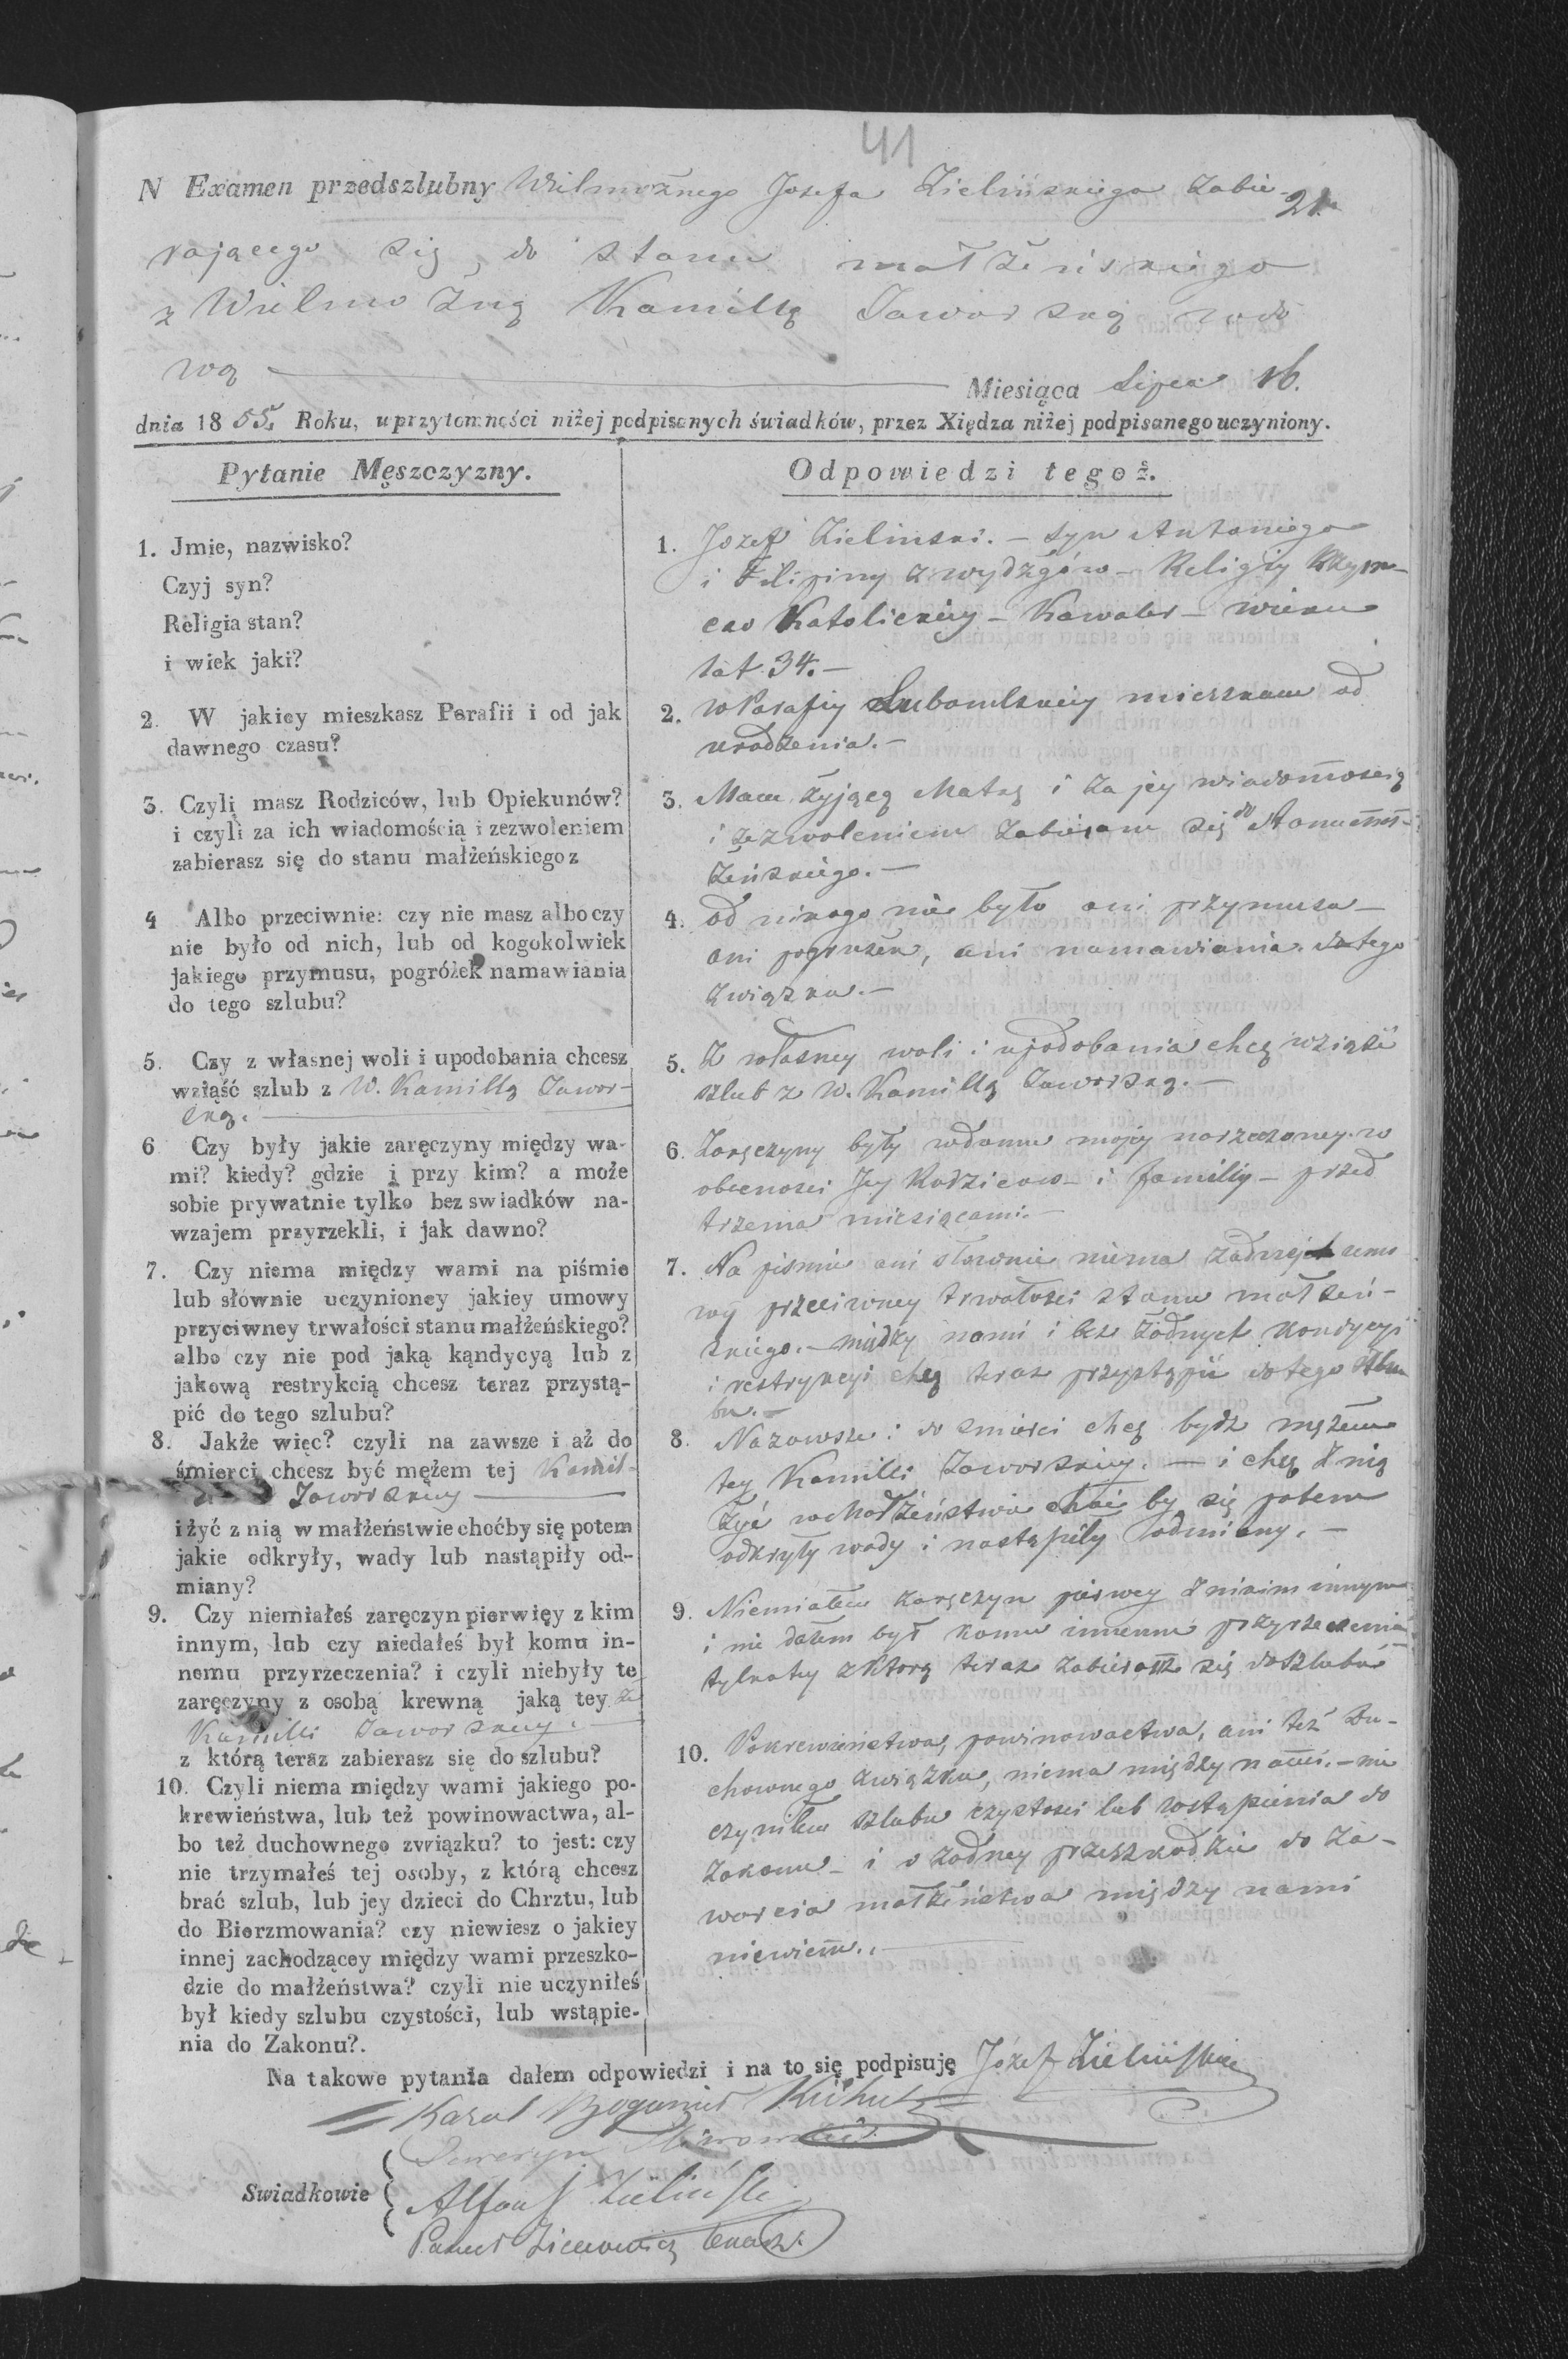 41
N Examen przedszlubny Wielmożnego Jozefa Zielińskiego zabie-
21.
rającego się do stanu małżeńskiego
z Wielmożną Kamillą Jaworską wdo
wą
Miesiąca Lipca 16.
dnia 1855. Roku, uprzytomności niżej podpisanych świadków, przez Xiędza niżej podpisanego uczyniony.
Pytanie Męszczyzny.
1. Jmie, nazwisko?
Czyj syn?
Religia stan?
i wiek jaki?
2. W jakiey mieszkasz Parafii i od jak
dawnego czasu?
3. Czylį masz Rodziców, lub Opiekunów?
i czyli za ich wiadomością i zezwoleniem
zabierasz się do stanu małżeńskiego z
4 Albo przeciwnie: czy nie masz albo czy
nie było od nich, lub od kogokolwiek
jakiego przymusu, pogróżek namawiania
do tego szlubu?
5. Czy z własnej woli i upodobania chcesz
wziąść szlub z W. Kamillą Jawor-
ską.
6 Czy były jakie zaręczyny między wa-
mi? kiedy? gdzie i przy kim? a może
sobie prywatnie tylko bez swiadków na-
wzajem przyrzekli, i jak dawno?
7. Czy niema między wami na piśmie
lub słównie uczynioney jakiey umowy
przyciwney trwałości stanu małżeńskiego?
albo czy nie pod jaką kąndycyą lub z
jakową restrykcią chcesz teraz przystą-
pić do tego szlubu?
8. Jakże więc? czyli na zawsze i aż do
śmierci chcesz być mężem tej Kamil-
Jaworskiey
i żyć z nią w małżeństwie choćby się potem
jakie odkryły, wady lub nastąpiły od-
miany?
9. Czy niemiałeś zaręczyn pierwięy z kim
innym, lub czy niedałeś był komu in-
nemu przyrzeczenia? i czyli niebyły te
zaręczyny z osobą krewną jaką tey że
Kamilli Jaworskiey.
z którą teraz zabierasz się do szlubu?
10. Czyli niema między wami jakiego po-
krewieństwa, lub też powinowactwa, al-
bo też duchownego związku? to jest: czy
nie trzymałeś tej osoby, z którą chcesz
brać szlub, lub jey dzieci do Chrztu, lub
do Bierzmowania? czy niewiesz o jakiey
innej zachodzącey między wami przeszko-
dzie do małżeństwa? czyli nie uczyniłeś
był kiedy szlubu czystości, lub wstąpie-
nia do Zakonu?.
Odpowiedzi tegoż.
1. Jozef Zielinski. – syn Antoniego
i Filipiny z wydżgów – Religiy Rzym-
sko Katolickiey – Kawaler – wieku
lat 34. –
2. w Parafiy Lubomlskiey mieszkam od
urodzenia. –
3. Mam żyjącą Matkę i za jey wiadomoscią
i zezwoleniem zabieram się do stanu mał-
żeńskiego. –
4. od nikogo nie było ani przymusu –
ani pogrużek, ani namawiania do tego
związku. –
5. Z własney woli i upodobania chcę wziąść
szlub z W. Kamillą Jaworską. –
6. Zaręczyny były w domu mojey narzeczoney w
obecnosci Jey Rodzicow i familiy – przed
trzema miesiącami. –
7. Na pismie ani słownie niema żadney umo
wy przeciwney trwałosci stanu małżeń-
skiego. – między nami i bez żadnych kondycyi
i restrykcyi chcę teraz przystąpić do tego szlu
bu. –
8. Nazawsze i do smierci chcę bydz mężem
tey Kamilli Jaworskiey. – i chcę z nią
żyć w Małżeństwie choć by się potem
odkryły wady i nastąpiły odmiany. –
9. Niemiałem zaręczyn pierwey z nikim innym
i nie dałem był komu innemu przyrzeczenia
tylko tey z ktorą teraz zabieram się do szlubu
10. Pokrewieństwa, powinowactwa, ani też Du-
chownego związku, niema między nami. – nie
czyniłem szlubu czystosci lub wstąpienia do
Zakonu – i o żadney przeszkodzie do za-
warcia małżeństwa między nami
niewiem. –
Na takowe pytania dałem odpowiedzi i na to się podpisuję Józef Zieliński
Karol Bogumił
Seweryn
Swiadkowie
Alfons Zieliński
Paweł